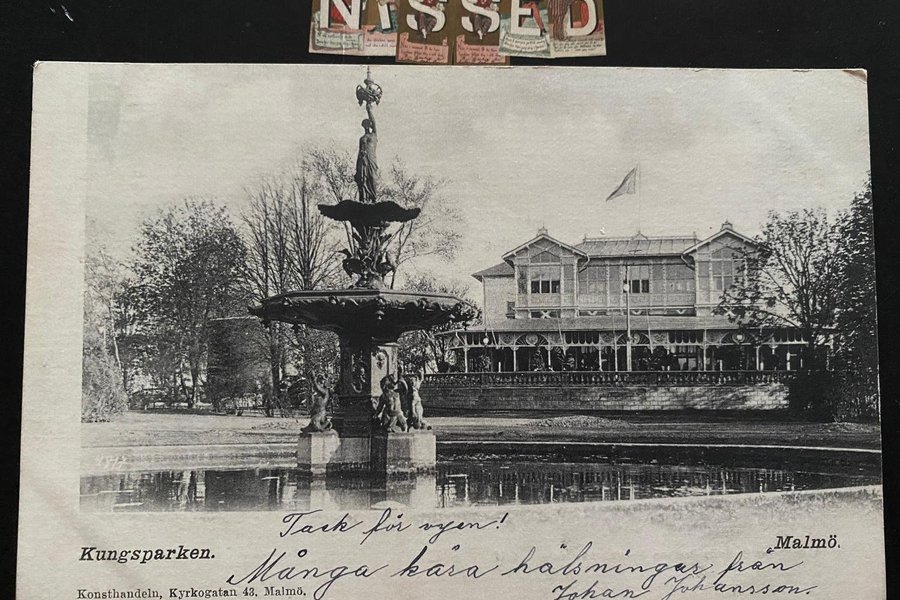 NISSED
Tack för vyen!
Kungsparken.
Malmö.
Många kära hälsningar från
Johan Johansson.
Konsthandeln, Kyrkogatan 43. Malmö.